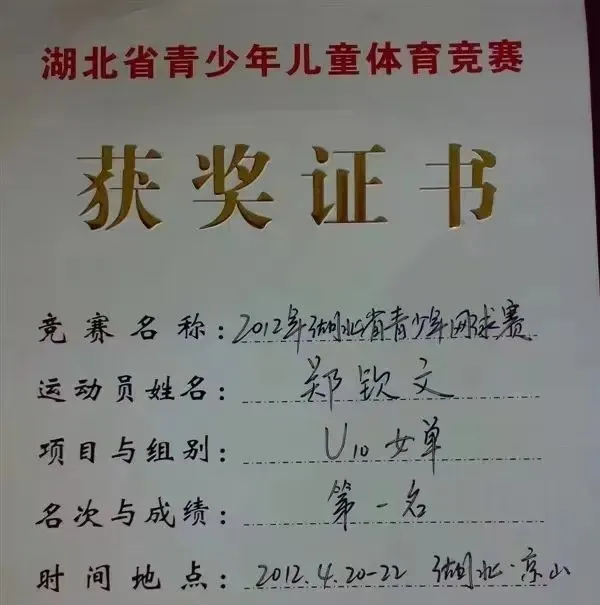 湖北省青少年儿童体育竞赛
获奖证书
竞赛名称:2012年湖北省青少年网球赛
运动员姓名:郑钦文
项目与组别:U10女单
名次与成绩:第一名
时间地点:2012.4.20-22 湖北·京山